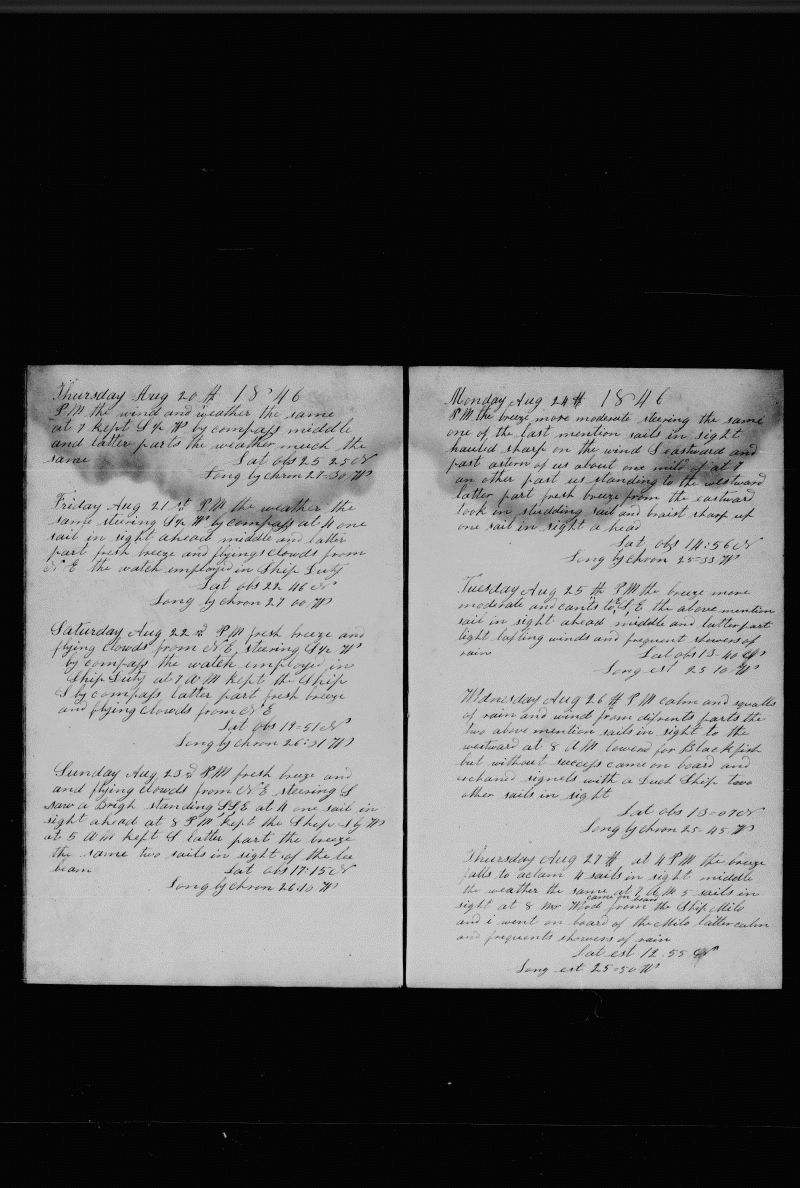 Thursday Aug 20th 1846
P M the wind and weather the same
at 7 kept S ½ W by compass middle
and latter parts the weather much the
same Lat obs 25 25 N
Long by chron 27=30 W
Friday Aug 21st P M the weather the
same steering S ½ W by compass at 4 one
sail in sight ahead middle and latter
part fresh breeze and flying clowds from
N E the watch employed in Ship Duty
Lat obs 22 46 N
Long by chron 27 00 W
Saturday Aug 22nd P M fresh breeze and
flying clowds from N E, steering S ½ W
by compass the watch employed in
Ship Duty at 7 A M kept the Ship
S by compass latter part fresh breeze
and flying clowds from N E
Lat obs 19=51 N
Long by chron 26=31 W
Sunday Aug 23d P M fresh breeze and
and flying clowds from N E steering S
saw a Brigh standing SSE at 4 one sail in
sight ahead at 8 P M kept the Ship S by W
at 5 A M kept S latter part the breeze
the same two sails in sight of the lee
beam Lat obs 17=15 N
Long by chron 26=10 W
Monday Aug 24th 1846
P M the breeze more moderate steering the same
one of the last mention sails in sight
hauled sharp on the wind S eastward and
past astern of us about one mile of at 7
an other part us standing to the westward
latter part fresh breeze from the eastward
took in studding sail and braist sharp up
one sail in sight a head
Lat obs 14=56 N
Long by chron 25=33 W
Tuesday Aug 25th P M the breeze more
moderate and cants to S E the above mention
sail in sight ahead middle and latter part
light bafling winds and frequent showers of
rain Lat obs 13=40 N
Long est 25 10 W
Wednesday Aug 26th P M calm and squalls
of rain and wind from difrents parts the
two above mention sails in sight to the
westward at 8 A M lowered for Blackfish
but without success came on board and
exchand signels with a Duch Ship two
other sails in sight
Lat obs 13=07 N
Long by chron 25=45 W
Thursday Aug 27th at 4 P M the breeze
falls to a clam 4 sails in sight middle
the weather the same at 7 A M 5 sails in
came on board
sight at 8 Mr from the Ship Milo
and i went on board of the Milo latter calm
and frequents showers of rain
Lat est 12=55 N
Long est 25=50 W